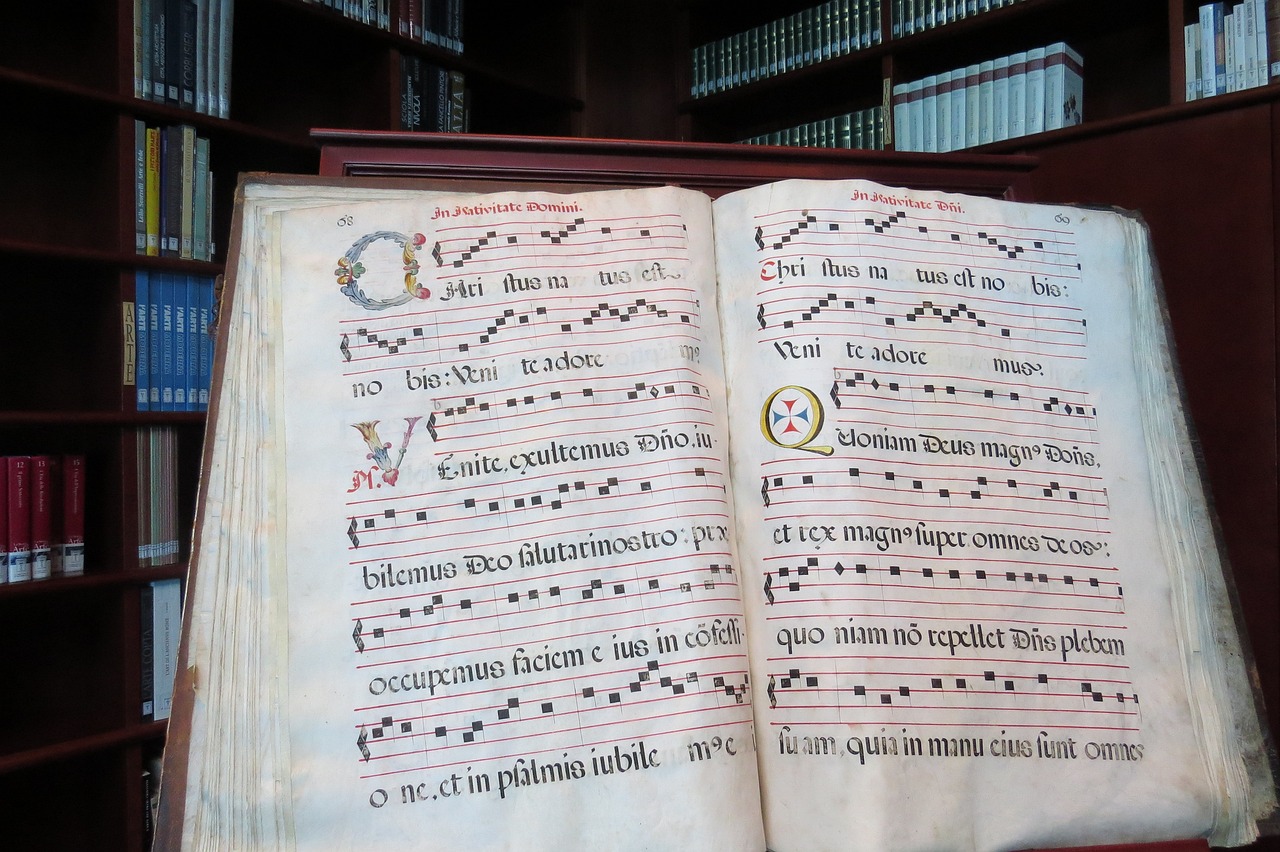 68
In Nativitate Domini.
CHri stus na tus est
no bis: Veni te adore m9
Ps. VEnite, exultemus Dño, iu-
bilemus Deo salutari nostro: præ
occupemus faciem e ius in cõfessi-
o ne, et in psalmis iubile m9 e
69
In Nativitate Dñi.
Chri stus na tus est no bis:
Veni te adore mus.
Quoniam Deus magn9 Doñs,
et rex magn9 super omnes deos:
quo niam nõ repellet Dñs plebem
suam, quia in manu eius sunt omnes
ARTE
L'ARTE
L'ARTE
L'ARTE
L'ARTE
L'ARTE
12
13
15